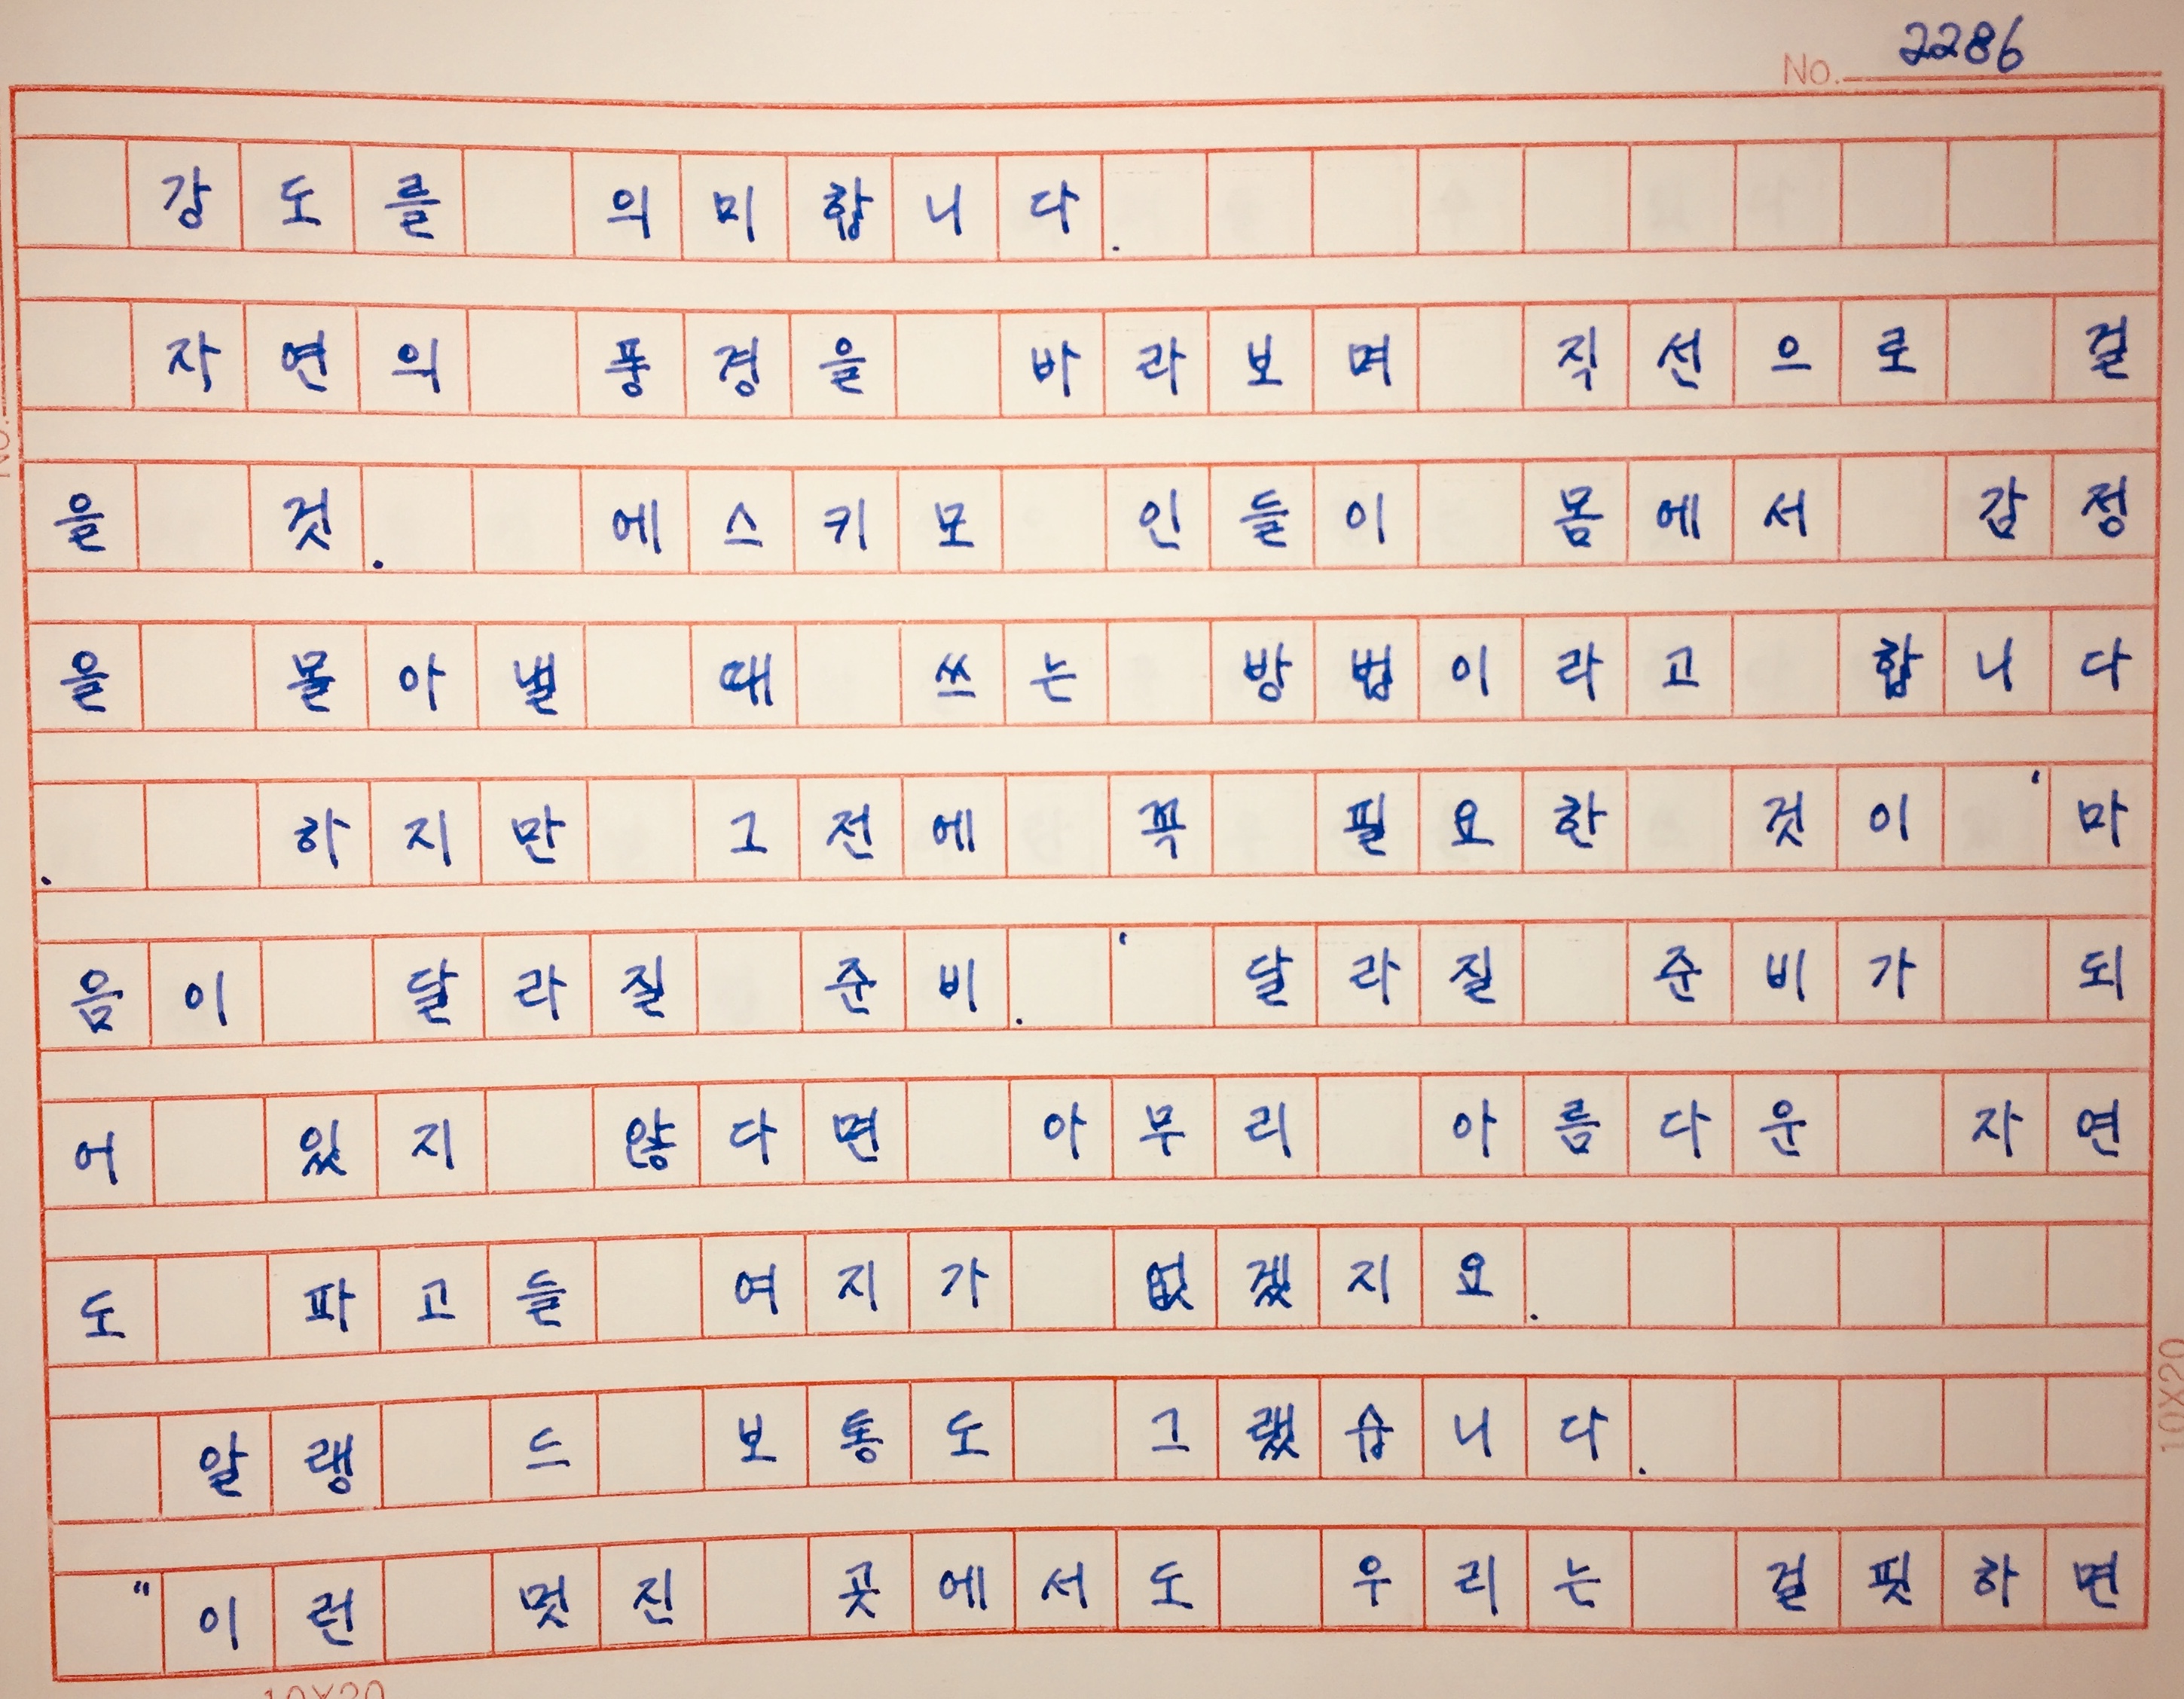 No. 2286
강도를 의미합니다.
자연의 풍경을 바라보며 직선으로 걸
을 것. 에스키모 인들이 몸에서 감정
을 몰아낼 때 쓰는 방법이라고 합니다
. 하지만 그전에 꼭 필요한 것이 '마
음이 달라질 준비. ' 달라질 준비가 되
어 있지 않다면 아무리 아름다운 자연
도 파고들 여지가 없겠지요.
알랭 드 보통도 그랬습니다.
"이런 멋진 곳에서도 우리는 걸핏하면
10X20
10X20
No.